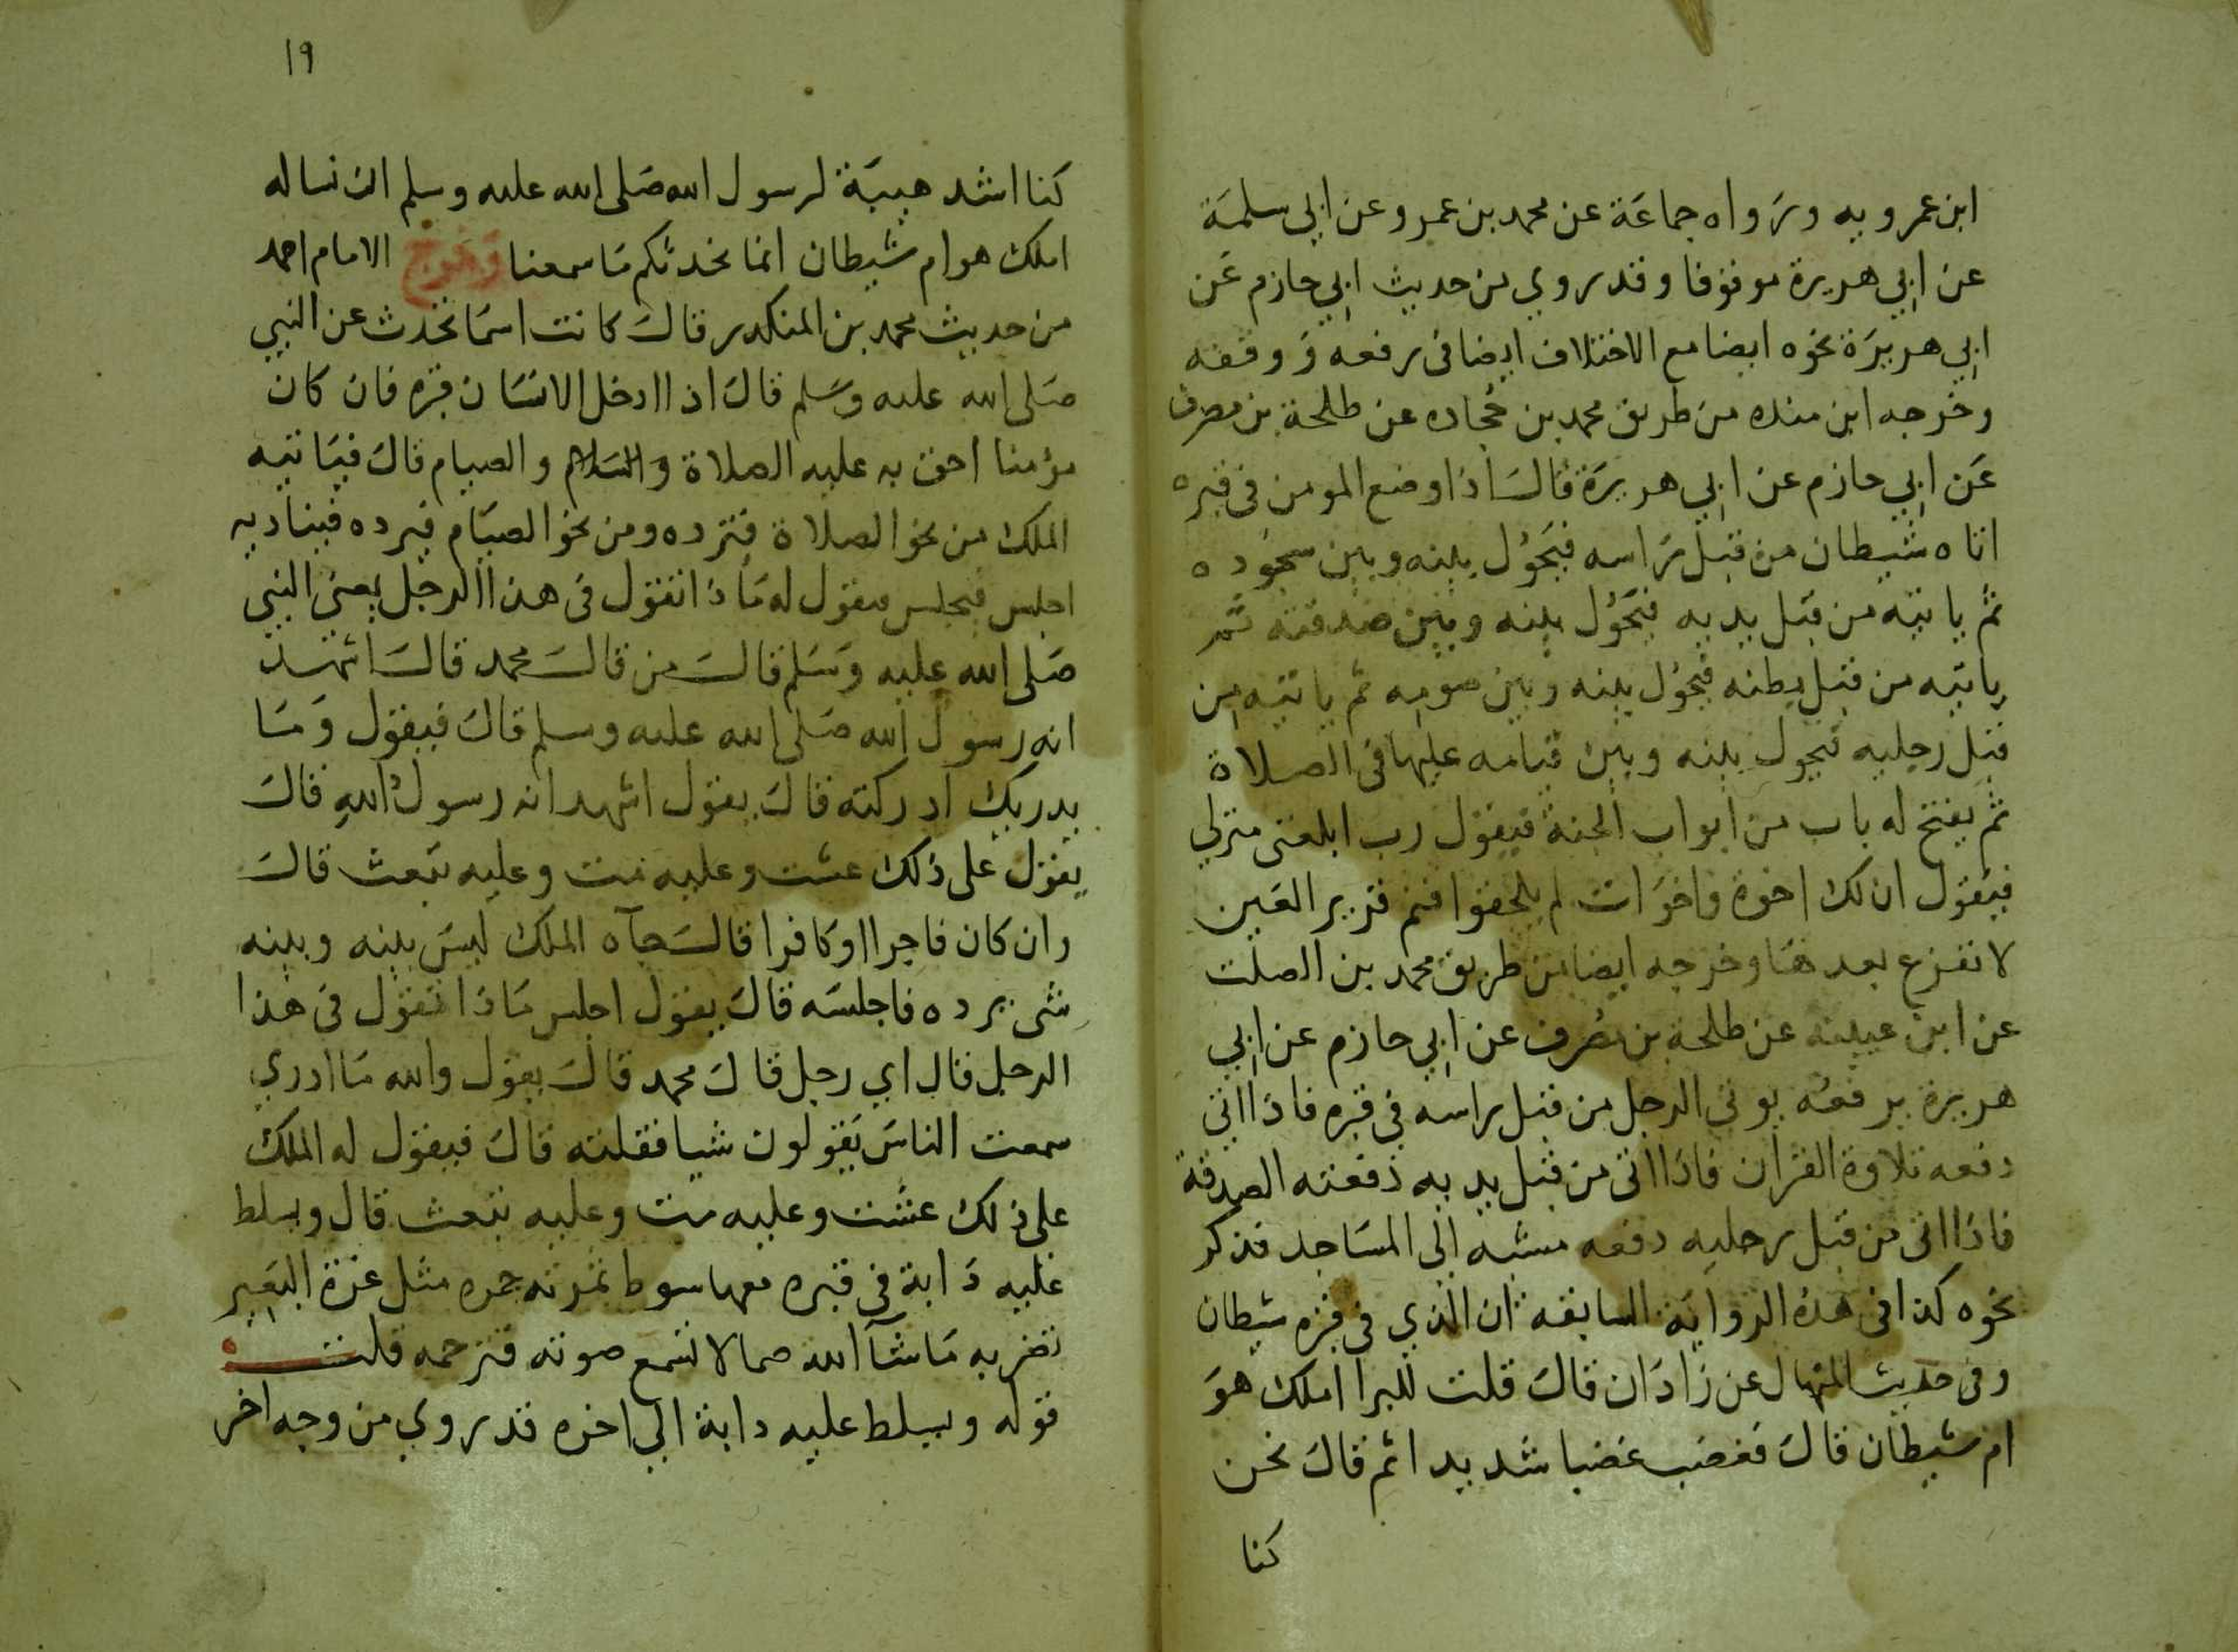 ابن عمرو به ورواه جماعة عن محمد بن عمرو عن ابي سلمة
عن ابي هريرة موقوفا وقد روي من حديث ابي حازم عن
ابي هريرة نحوه ايضا مع الاختلاف ايضا في رفعه ووقفه
وخرجه ابن منده من طريق محمد بن جحاده عن طلحة بن مصرف
عن ابي حازم عن ابي هريرة قال اذا وضع المومن في قبره
اتاه شيطان من قبل راسه فيحول بينه وبين سجوده
ثم ياتيه من قبل يديه فيحول بينه وبين صدقته ثم
ياتيه من قبل بطنه فيحول بينه وبين صومه ثم ياتيه من
قبل رجليه فيحول بينه وبين قيامه عليها في الصلاة
ثم يفتح له باب من ابواب الجنة فيقول رب ابلغني منزلي
فيقول ان لك اخوة واخوات لم يلحقوا فنم قرير العين
لا تفزع بعدها وخرجه ايضا من طريق محمد بن الصلت
عن ابن عيينه عن طلحة بن مصرف عن ابي حازم عن ابي
هريرة يرفعه يوتي الرجل من قبل راسه في قبره فاذا اتي
دفعه تلاوة القران فاذا اتي من قبل يديه دفعته الصدقة
فاذا اتي من قبل رجليه دفعه مشيه الي المساجد فذكر
نحوه كذا في هذه الرواية السابقة ان الذي في قبره شيطان
وفي حديث المنهال عن زاذان قال قلت للبرا املك هو
ام شيطان قال فغضب غضبا شديدا ثم قال نحن
كنا
١٩
كنا اشد هيبة لرسول الله صلى الله عليه وسلم ان نساله
املك هو ام شيطان انما نحدثكم ما سمعنا وخرج الامام احمد
من حديث محمد بن المنكدر قال كانت اسما تحدث عن النبي
صلى الله عليه وسلم قال اذا ادخل الانسان قبره فان كان
مؤمنا احق به عليه الصلاة والسلام والصيام قال فياتيه
الملك من نحو الصلاة فترده ومن نحو الصيام فيرده فيناديه
اجلس فيجلس فيقول له ماذا تقول في هذا الرجل يعني النبي
صلى الله عليه وسلم قال من قال محمد قال اشهد
انه رسول الله صلى الله عليه وسلم قال فيقول وما
يدريك ادركته قال يقول اشهد انه رسول الله قال
يقول على ذلك عشت وعليه مت وعليه تبعث قال
وان كان فاجرا او كافرا قال جآه الملك ليس بينه وبينه
شي يرده فاجلسه قال يقول اجلس ماذا تقول في هذا
الرجل قال اي رجل قال محمد قال يقول والله ما ادري
سمعت الناس يقولون شيا فقلته قال فيقول له الملك
على ذلك عشت وعليه مت وعليه تبعث قال ويسلط
عليه دابة في قبره معها سوط تمرته جمره مثل عرة البعير
تضربه ما شآ الله صما لا تسمع صوته فترحمه قلت
قوله ويسلط عليه دابة الي اخره قد روي من وجه اخر